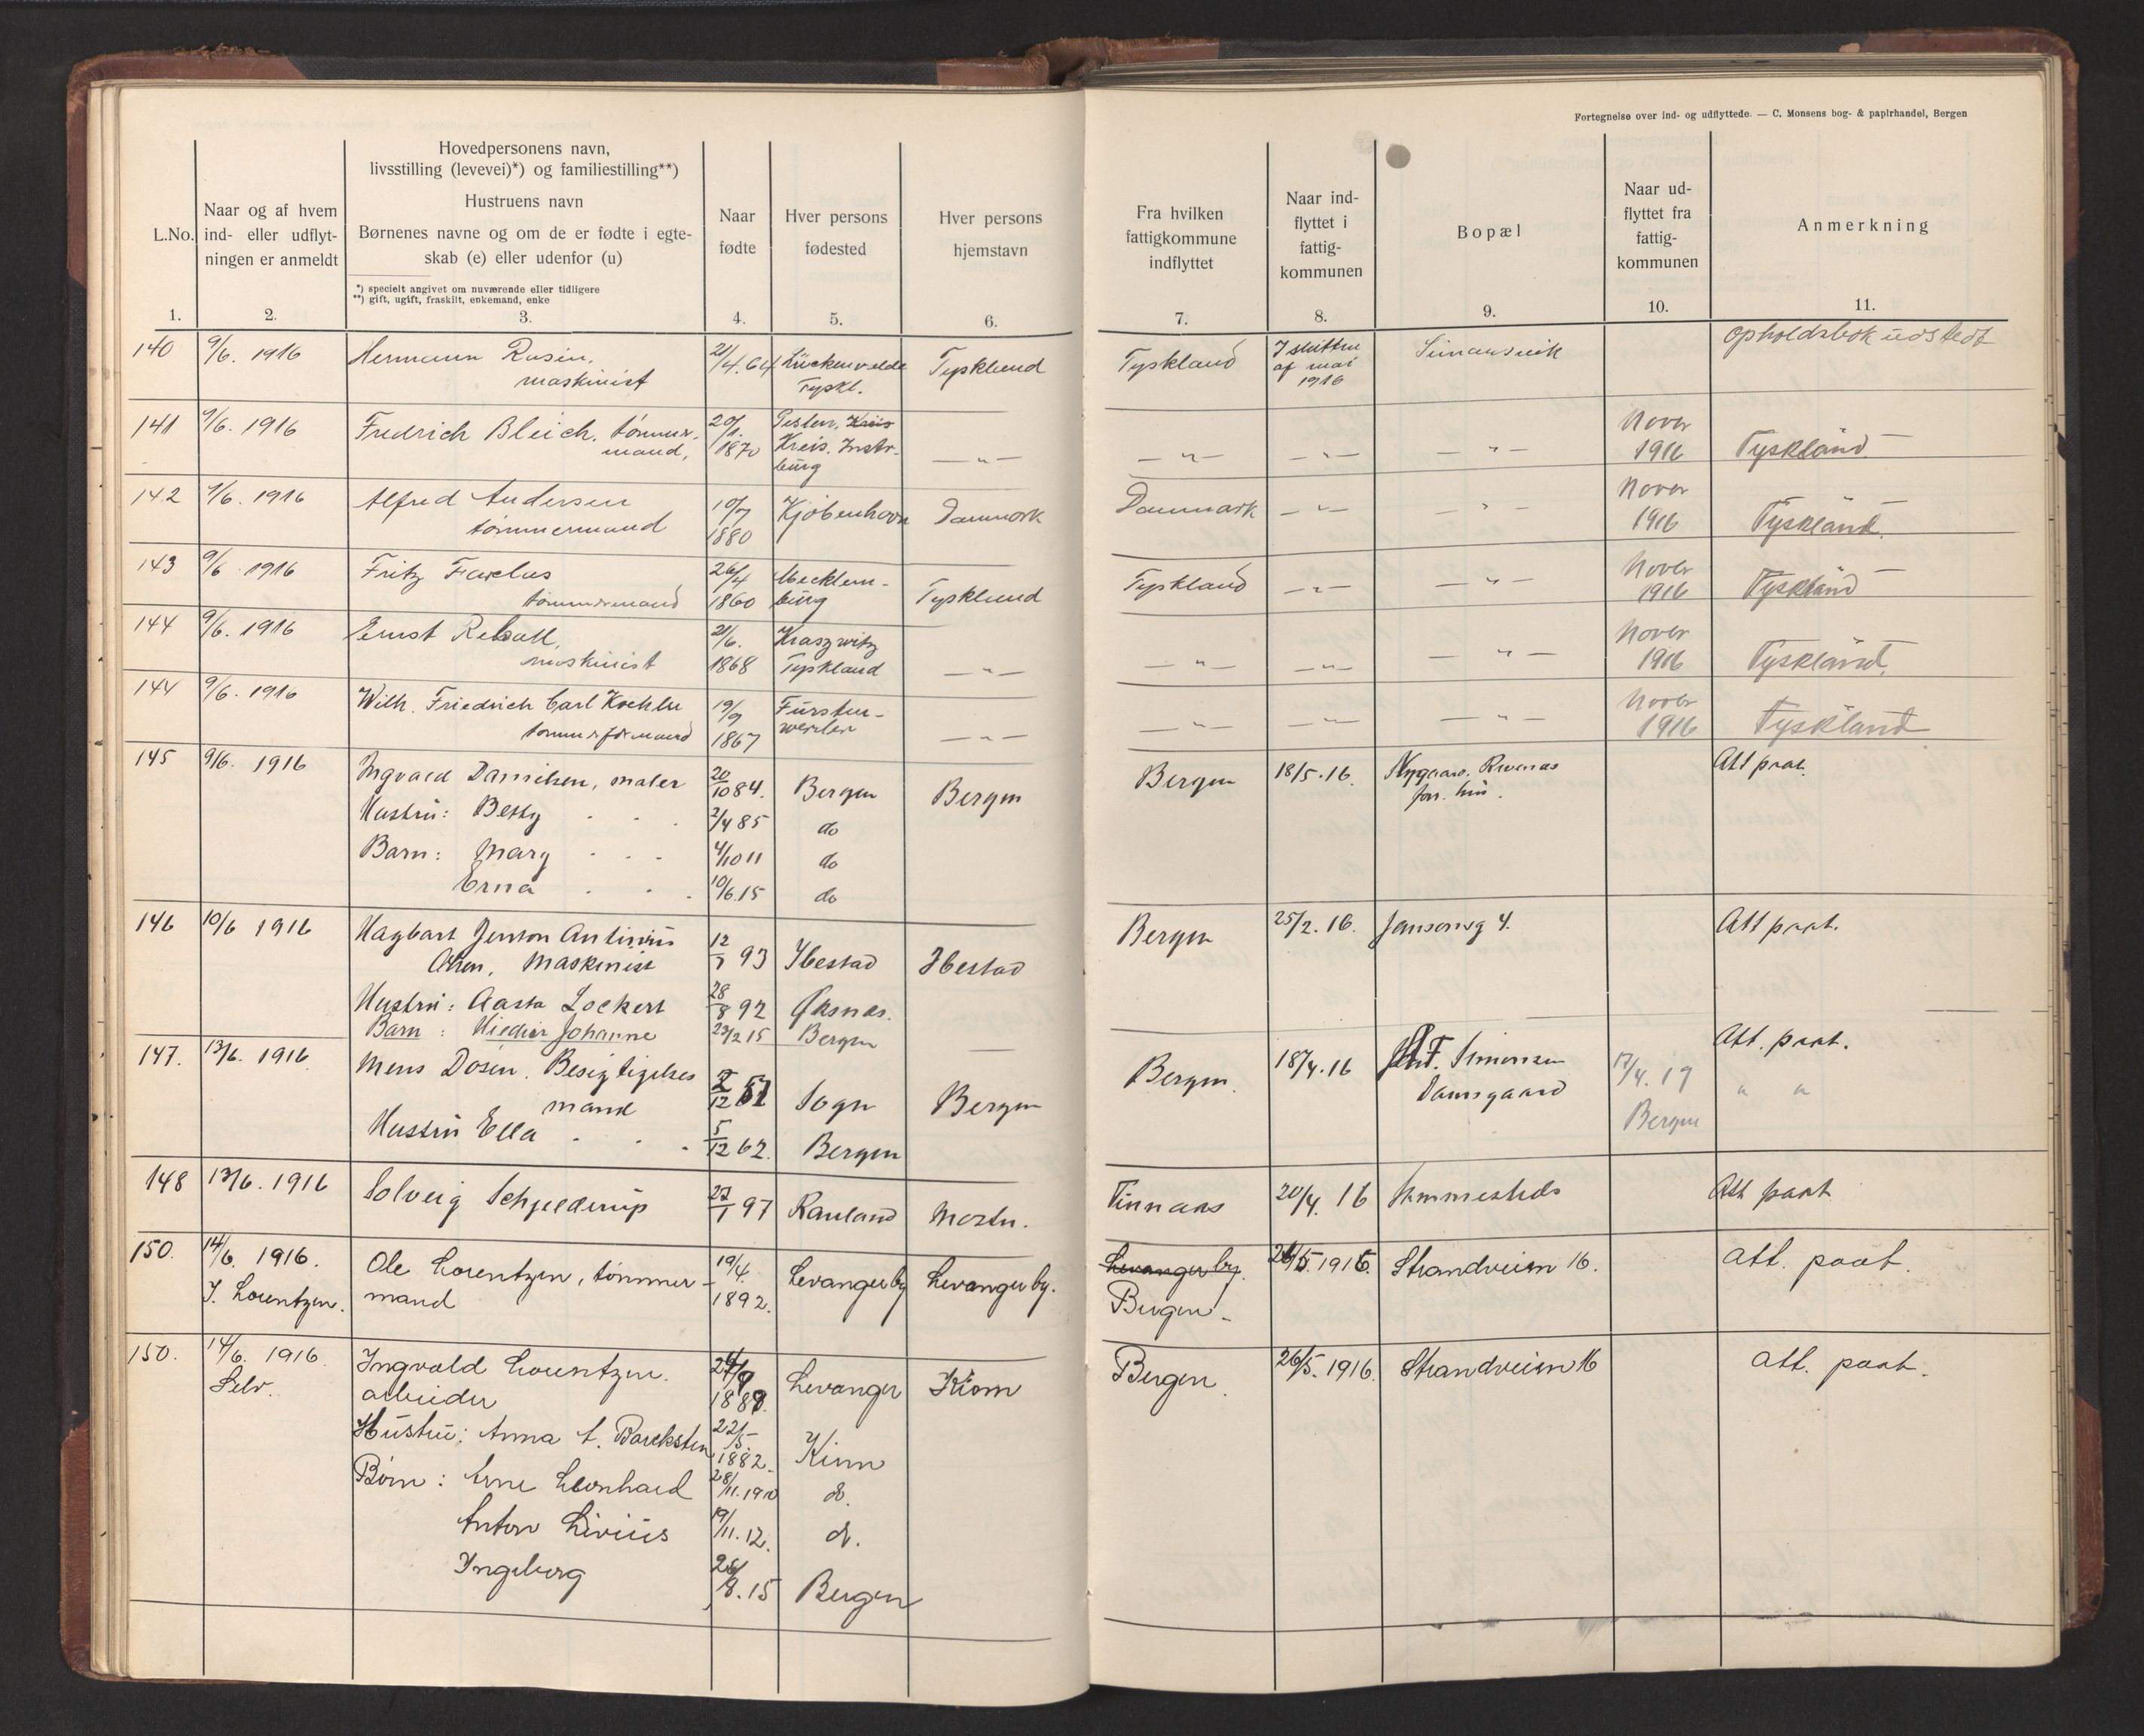 Fortegnelse over ind- og udflyttede. — C. Monsens bog- & papirhandel, Bergen
L.No.
Naar og af hvem
ind- eller udflyt-
ningen er anmeldt
Hovedpersonens navn,
livsstilling (levevei)*) og familiestilling**)
Hustruens navn
Børnenes navne og om de er fødte i egte-
skab (e) eller udenfor (u)
*) specielt angivet om nuværende eller tidligere
**) gift, ugift, fraskilt, enkemand, enke
Naar
fødte
Hver persons
fødested
Hver persons
hjemstavn
Fra hvilken
fattigkommune
indflyttet
Naar ind-
flyttet i
fattig-
kommunen
Bopæl
Naar ud-
flyttet fra
fattig-
kommunen
Anmerkning
1. 2. 3. 4. 5. 6. 7. 8. 9. 10. 11.
140 9/6. 1916 Hermann Rosin, 21/4.64 Lückenwalde Tyskland Tyskland I slutten opholdsbok udstedt
maskinist Tyskl. af mai
1916
141 9/6. 1916 Fredrich Bleich, tømmer- 20/1. Kreis Nover
mand, 1870 Kreis. Instr- — " — — " — — " — — " — 1916 Tyskland
burg
142 9/6. 1916 Alfred Andersen 10/7 Kjøbenhavn Danmark Danmark — " — — " — Nover
tømmermand 1880 1916 Tyskland.
143 9/6 1916 Fritz 26/4 Mecklen- Tyskland Tyskland — " — — " — Nover
tømmermand 1860 burg 1916 Tyskland
144 9/6. 1916 Ernst 21/6. Kraszwitz Nover
maskinist 1868 Tyskland — " — — " — — " — — " — 1916 Tyskland.
144 9/6. 1916 Wilh. Friedrich Carl Koehler 19/9 Fürsten- Nover
tømmerformand 1867 werder — " — — " — — " — — " — 1916 Tyskland
145 9/6. 1916 Ingvald Danielsen, maler 20/10 84. Bergen Bergen Bergen 18/5.16. Nygaard. Att paat.
Hustru: Betty 2/4 85 do
Barn: Mary 4/10 11 do
Erna 10/6.15 do
146 10/6 1916 Hagbart Jenton Antinius 12/1 93 Ibestad Ibestad Bergen 25/2.16. Jansonsg 4. Att paat.
Olsen, Maskinist
Hustru: Aasta Lockert 28/8 92 Øksnes.
Barn: Johanne 23/2 15 Bergen
147. 13/6. 1916 Mons Dosen. Besigtigelses Sogn Bergen Bergen. 18/4.16 Simonsen 17/4.19 Att. paat.
mand Damsgaard " "
Hustru Ella 5/12 62. Bergen Bergen
148 13/6. 1916 Solveig Schjelderup 27/1 97 Rauland Tinnaas 20/4. 16 Att paat
150. 14/6. 1916. Ole Lorentzen, tømmer- 19/4. Levanger by Levanger by. Levanger by. 26/5.1916. Strandveien 16. att. paat.
I. Lorentzen. mand 1892. Bergen.
150. 14/6. 1916. Ingvald Lorentzen. 24/9 Levanger Kinn Bergen 26/5.1916. Strandveien 16 att. paat.
Selv. arbeider
Hustru: Anna 22/5 Kinn
1882.
Børn: Arne Leonhard 28/11.1910 do.
Anton Livius 19/11.12. do.
Ingeborg 26/8.15 Bergen